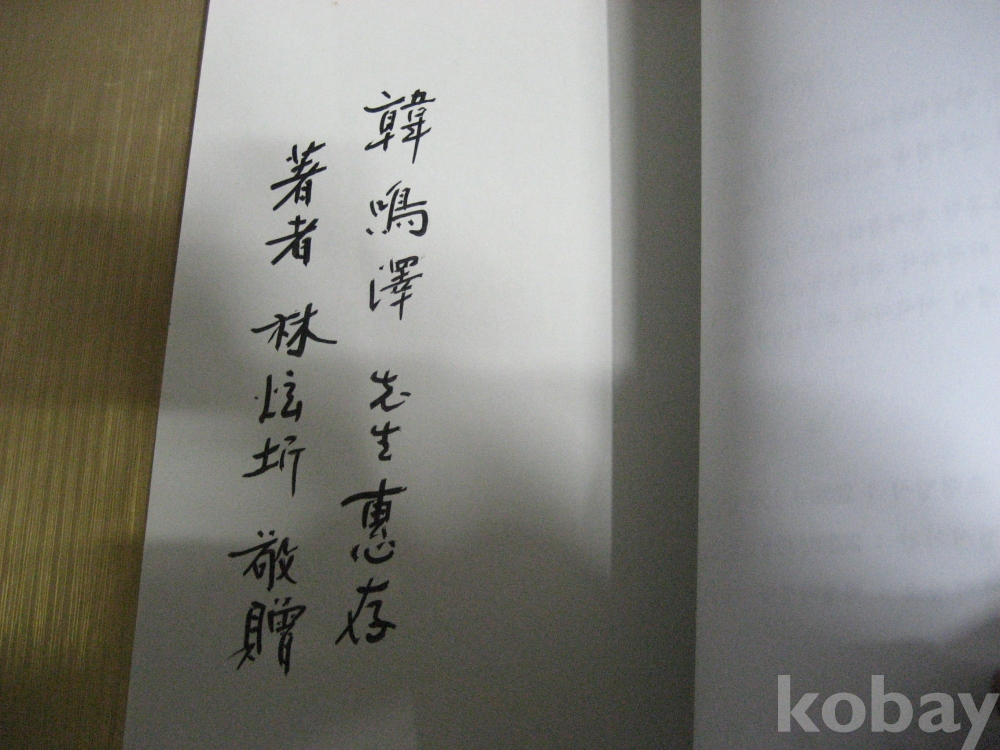 韓鳴澤 先生 惠存
著者 林炫圻 敬贈
kobay